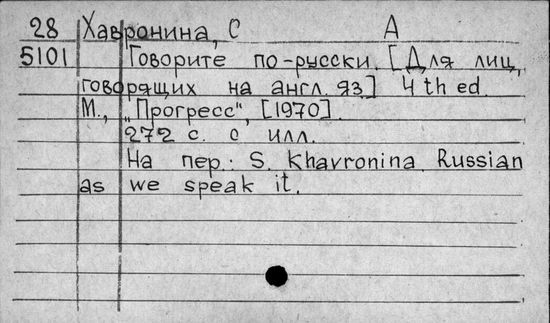 28 Хавронина, С А
5101 Говорите по-русски. [Для лиц,
говорящих на англ. яз.] 4th ed.
М., „Прогресс", [1970].
272 с. с илл.
На пер.: S. Khavronina. Russian
as we speak it.